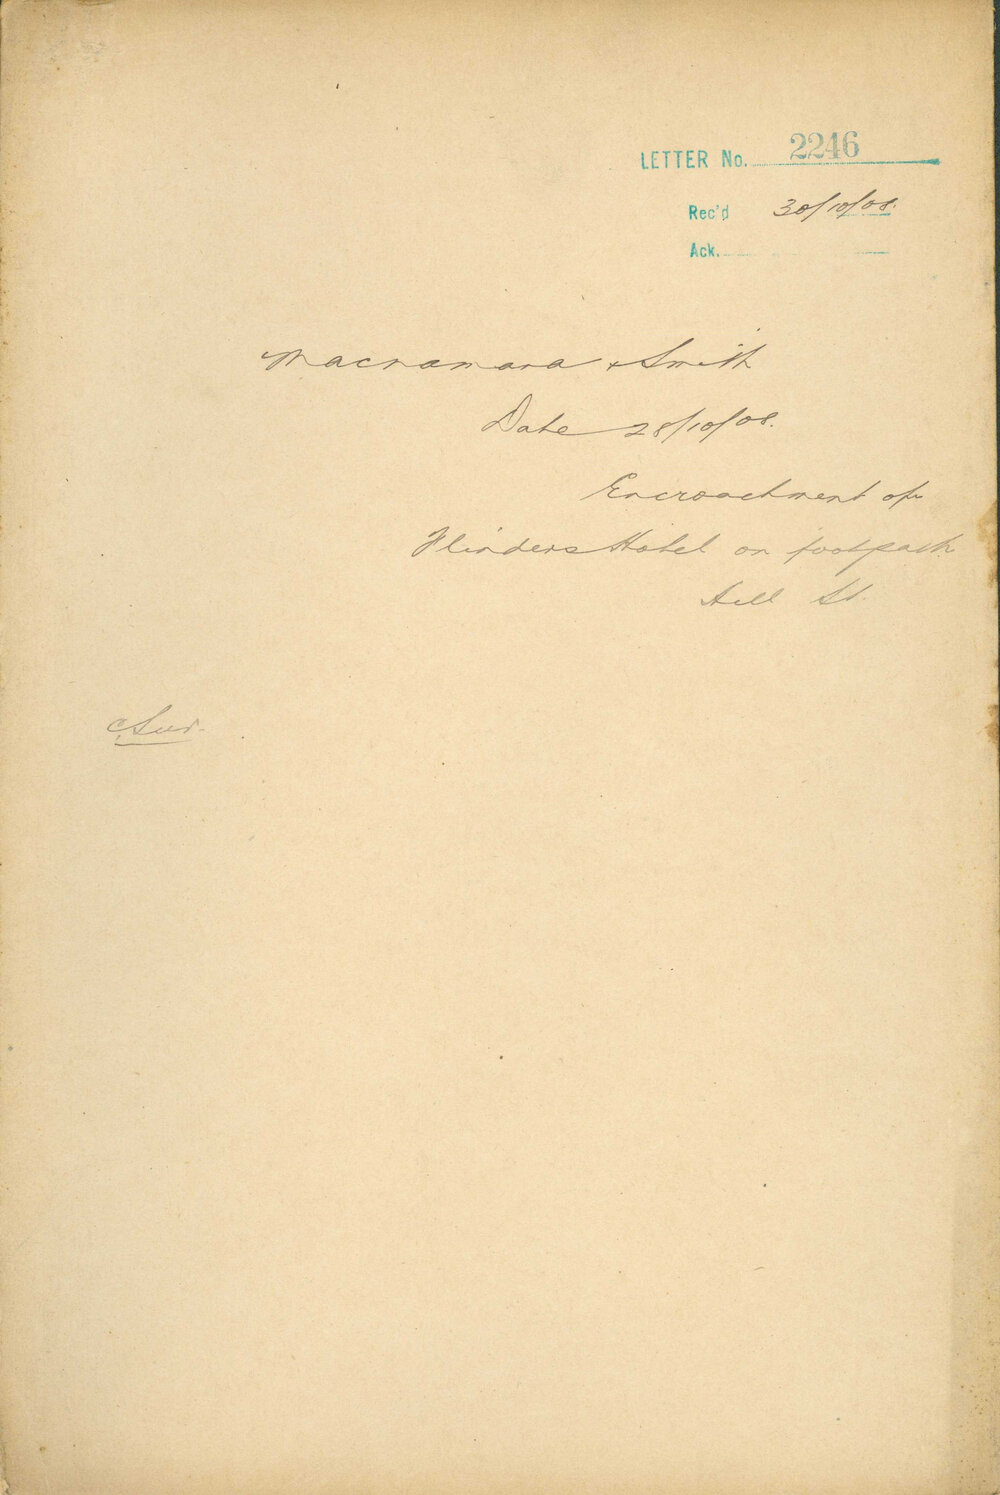 LETTER No. 2246
Rec'd 30/10/08.
Ack.
Macnamara & Smith
Date 28/10/08.
Encroachment of
Flinders Hotel on footpath
St.